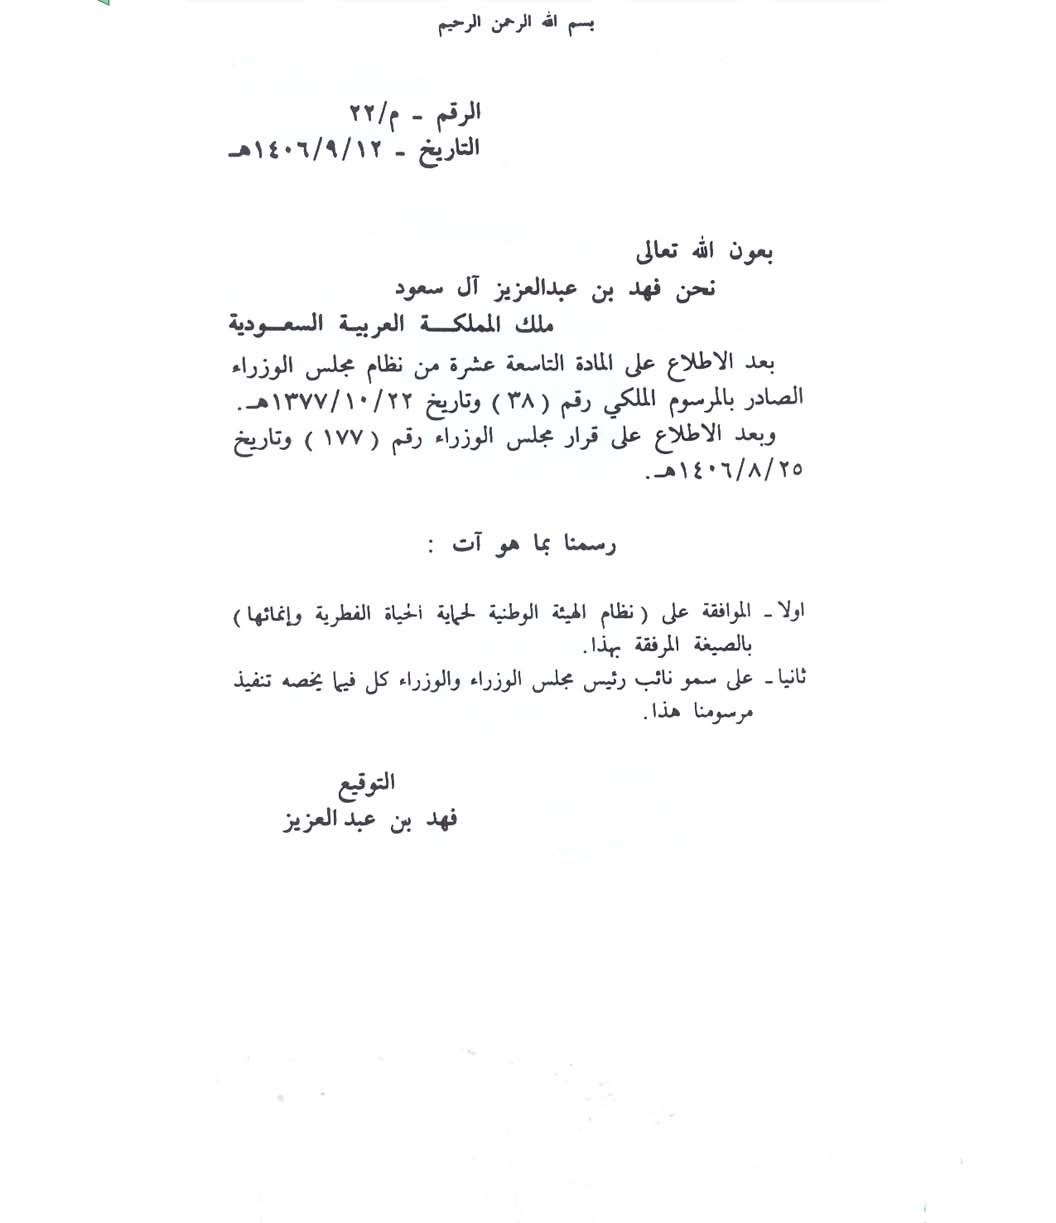 بسم الله الرحمن الرحيم
الرقم - م/٢٢
التاريخ - ١٤٠٦/٩/١٢هـ
بعون الله تعالى
نحن فهد بن عبدالعزيز آل سعود
ملك المملكة العربية السعودية
بعد الاطلاع على المادة التاسعة عشرة من نظام مجلس الوزراء
الصادر بالمرسوم الملكي رقم (٣٨) وتاريخ ١٣٧٧/١٠/٢٢هـ.
وبعد الاطلاع على قرار مجلس الوزراء رقم (١٧٧) وتاريخ
١٤٠٦/٨/٢٥هـ.
رسمنا بما هو آت :
اولا - الموافقة على (نظام الهيئة الوطنية لحماية الحياة الفطرية وإنمائها)
بالصيغة المرفقة بهذا.
ثانيا - على سمو نائب رئيس مجلس الوزراء والوزراء كل فيما يخصه تنفيذ
مرسومنا هذا.
التوقيع
فهد بن عبد العزيز